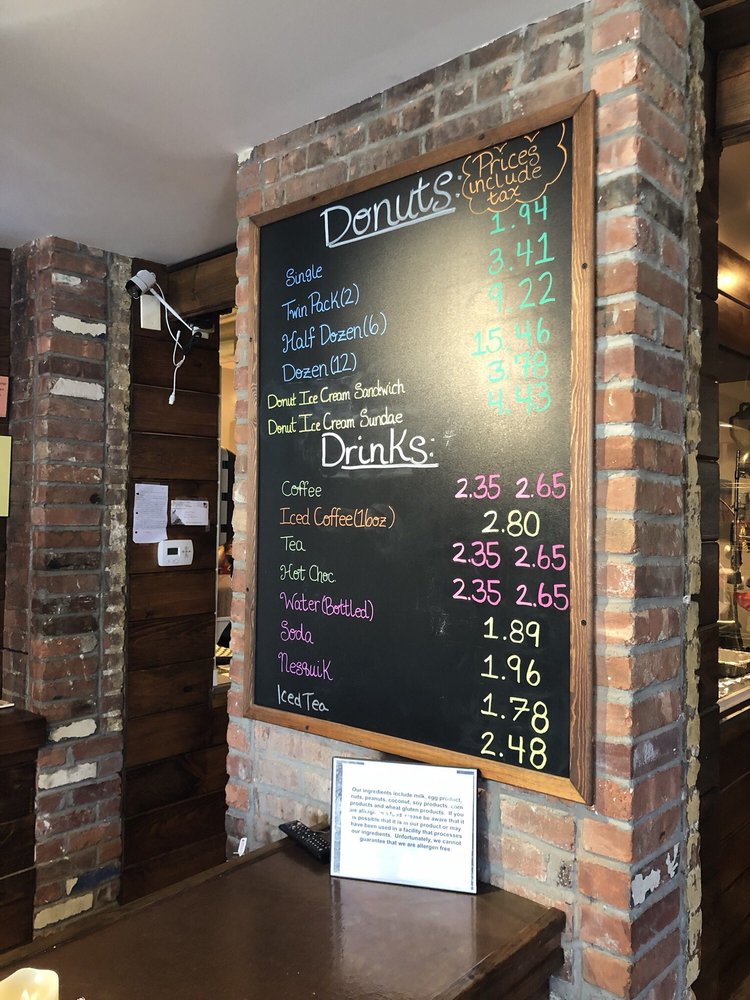 Donuts:
Prices
include
tax
Single 1.94
Twin Pack (2) 3.41
Half Dozen (6) 9.22
Dozen (12) 15.46
Donut Ice Cream Sandwich 3.78
Donut Ice Cream Sundae 4.43
Drinks:
Coffee 2.35 2.65
Iced Coffee (16oz) 2.80
Tea 2.35 2.65
Hot Choc. 2.35 2.65
Water (Bottled) 1.89
Soda 1.96
Nesquik 1.78
Iced Tea 2.48
Our ingredients include milk, egg product,
nuts, peanuts, coconut, soy products, corn
products and wheat gluten products. If you
are please be aware that it
is possible that it is in our product or may
have been used in a facility that processes
our ingredients. Unfortunately, we cannot
guarantee that we are allergen free.